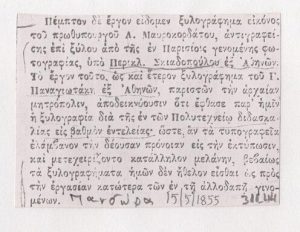 Πέμπτον δὲ ἔργον εἴδομεν ξυλογράφημα εἰκόνος
τοῦ πρωθυπουργοῦ Α. Μαυροκορδάτου, ἀντιγραφεί-
σης ἐπὶ ξύλου ἀπὸ τῆς ἐν Παρισίοις γενομένης φω-
τογραφίας, ὑπὸ Περικλ. Σκιαδοπούλου ἐξ Ἀθηνῶν.
Τὸ ἔργον τοῦτο, ὡς καὶ ἕτερον ξυλογράφημα τοῦ Γ.
Παναγιωτάκη ἐξ Ἀθηνῶν, παριστῶν τὴν ἀρχαίαν
μητρόπολιν, ἀποδεικνύουσιν ὅτι ἔφθασε παρ' ἡμῖν
ἡ ξυλογραφία διὰ τῆς ἐν τῷ Πολυτεχνείῳ διδασκα-
λίας εἰς βαθμὸν ἐντελείας· ὥστε, ἂν τὰ τυπογραφεῖα
ἐλάμβανον τὴν δέουσαν πρόνοιαν εἰς τὴν ἐκτύπωσιν,
καὶ μετεχειρίζοντο κατάλληλον μελάνην, βεβαίως
τὰ ξυλογραφήματα ἡμῶν δὲν ἤθελον εἶσθαι ὡς πρὸς
τὴν ἐργασίαν κατώτερα τῶν ἐν τῇ ἀλλοδαπῇ γινο-
μένων. Πανδώρα 15/5/1855